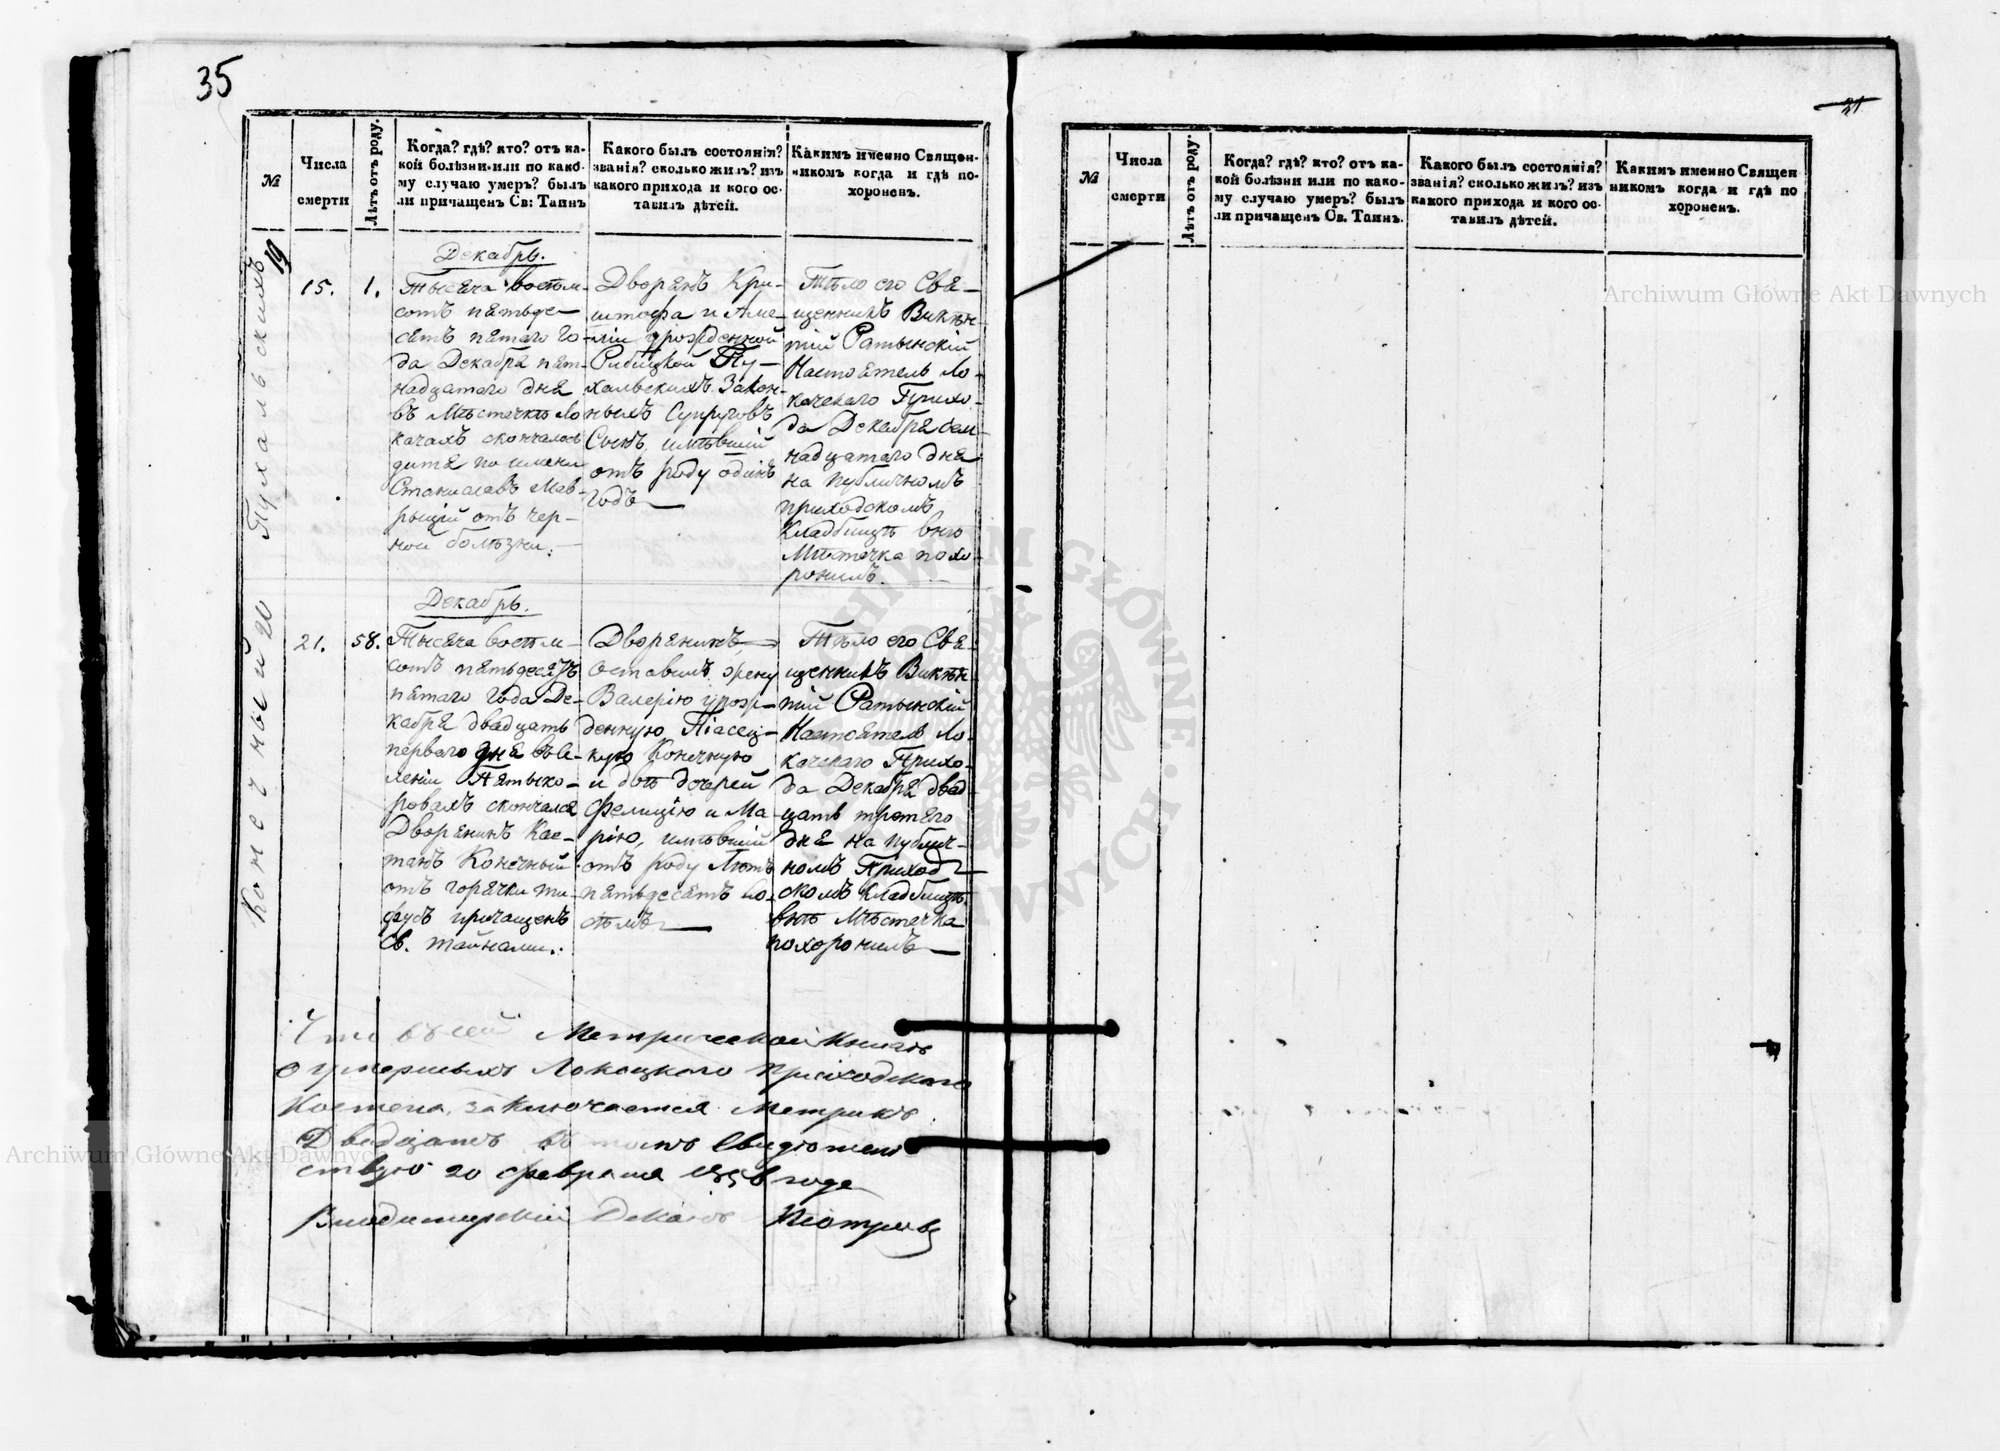 35
№
Числа
смерти
Лѣтъ отъ роду.
Когда? гдѣ? кто? отъ ка-
кой болѣзни или по како-
му случаю умеръ? былъ
ли причащенъ Св: Таинъ
Какого былъ состоянія?
званія? сколько жилъ? изъ
какого прихода и кого ос-
тавилъ дѣтей.
Какимъ именно Священ-
никомъ когда и гдѣ по-
хороненъ.
19
Пухальскихъ
15.
1.
Декабрь.
Тысяча восемь-
сотъ пятьде-
сятъ пятаго го-
да Декабря пят-
надцатого дня
въ Мѣстечкѣ Ло
качахъ скончалось
дитя по имени
Станиславъ Мав-
рыцій отъ чер-
ной болѣзни.
Дворянъ Кри-
штофа и Аме-
ліи урожденной
Рибицкой Пу-
хальскихъ Закон-
ныхъ Супруговъ
Сынъ, имѣвшій
отъ роду одинъ
годъ
Тѣло его Свя-
щенникъ Викен-
тій Ратынскій
Настоятель Ло-
качскаго Прихо-
да Декабря сем-
надцатого дня
на публичномъ
приходскомъ
Кладбищѣ внѣ
Мѣстечка похо-
ронилъ.
20
Конечный
21.
58.
Декабрь.
Тысяча восемь-
сотъ пятьдесятъ
пятаго года Де-
кабря двадцать
перваго дня въ Се-
леніи Пятыко-
ровахъ скончался
Дворянинъ Кае-
танъ Конечный
отъ горячки ти-
фусъ причащенъ
Св. тайнами.
Дворянинъ,
Оставилъ жену
Валерію урож-
денную Піасец-
кую Конечную
и двѣ дочерей
Фелицію и Ма-
рію, имѣвшій
отъ роду Лѣтъ
пятьдесятъ во-
сѣмъ
Тѣло его Свя-
щенникъ Викен-
тій Ратынскій
Настоятель Ло-
качскаго Прихо-
да Декабря двад-
цать третяго
дня на публич-
номъ Приход-
скомъ кладбищѣ
внѣ Мѣстечка
похоронилъ
Что въ сей Метрической Книгѣ
о умершихъ Локацкого Приходского
Костела, заключается Метрикъ
Двадцать въ томъ Свидѣтель
ствую 20 февраля 1856 года
Владимирскій Деканъ
21
№
Числа
смерти
Лѣтъ отъ роду.
Когда? гдѣ? кто? отъ ка-
кой болѣзни или по како-
му случаю умеръ? былъ
ли причащенъ Св. Таинъ.
Какого былъ состоянія?
званія? сколько жилъ? изъ
какого прихода и кого ос-
тавилъ дѣтей.
Какимъ именно Священ
никомъ когда и гдѣ по
хороненъ.
Archiwum Główne Akt Dawnych
Archiwum Główne Akt Dawnych